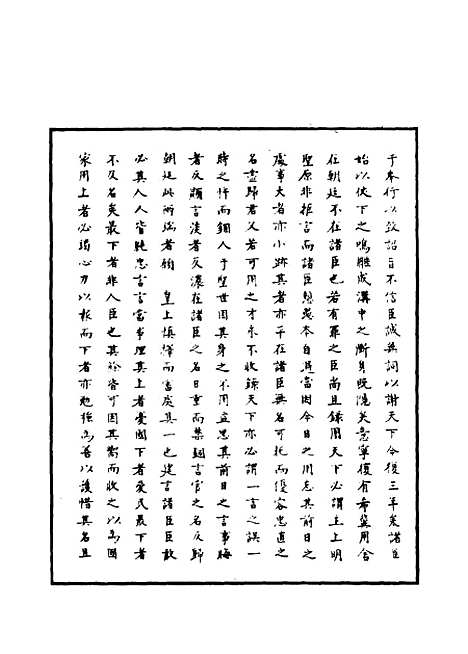 于奉行以致詔旨不信臣誠無詞以謝天下今後三年矣諸臣
始以伏下之鳴雖成溝中之斷身既隱矣意寧復有希冀用舍
在朝廷不在諸臣也若有罪之臣尚且錄用天下必謂主上明
聖原非拒言而諸臣愆尤本自遇當因今日之用忘其前日之
處事大者亦小跡異者亦平在諸臣無名可托而優容忠直之
名盡歸君父若可用之才永不收錄天下亦必謂一言之誤一
時之忤而錮人于聖世因其身之不用並思其前日之言事晦
者反顯言淺者反深在諸臣之名日重而禁錮言官之名反歸
朝廷此所謂者煩 皇上慎擇而審處其一也建言諸臣臣敢
必其人人皆純忠言言當事理其上者愛國下者愛民最下者
不及名矣最下者非人臣也其餘皆可因其嚮而收之以為國
家用上者必竭心力以報而下者亦勉強為善以護惜其名且